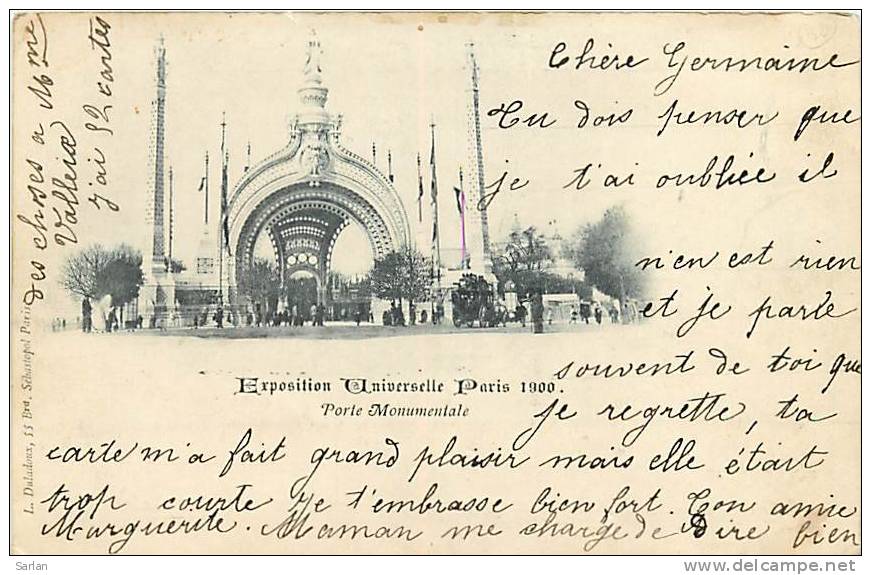 Chère Germaine
Tu dois penser que
je t'ai oubliée il
n'en est rien
et je parle
souvent de toi que
je regrette, ta
carte m'a fait grand plaisir mais elle était
trop courte je t'embrasse bien fort. Ton amie
Marguerite. Maman me charge de dire bien
des choses a Mme
j'ai 52 cartes
Exposition Universelle Paris 1900.
Porte Monumentale
L. Duladoux, 55 Brd. Sébastopol Paris
Sarlan
www.delcampe.net